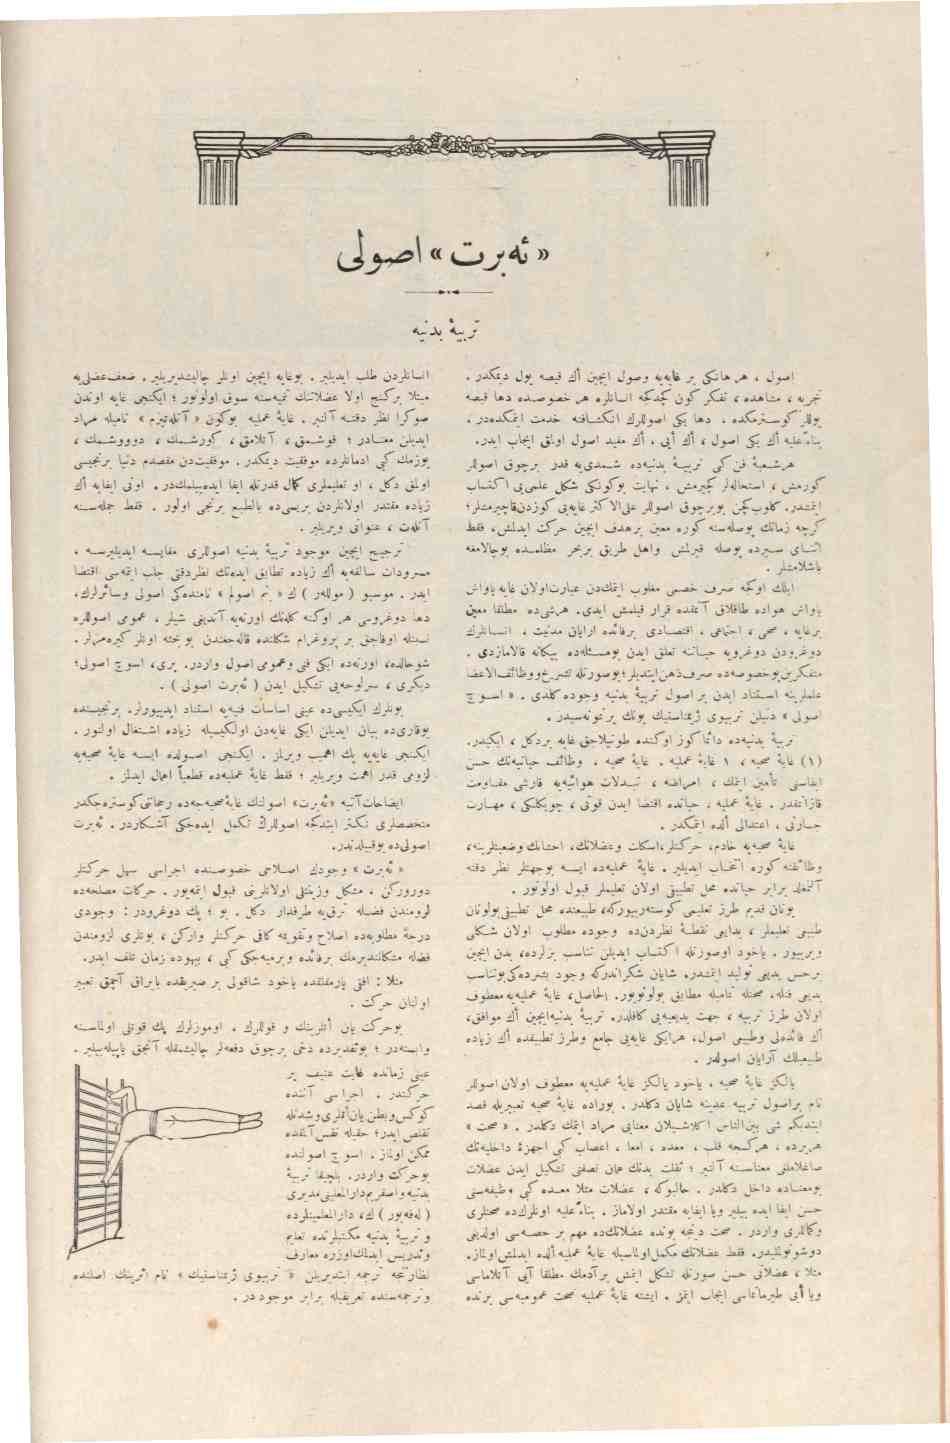 « ئه‌برت » اصولی
تربیۀ بدنیه
اصول ، هر هانكی بر غایه‌یه وصول ایچین اڭ قیصه یول دیمكدر .
تجربه ، مشاهده ، تفكر كون كچدكجه انسانلره هر خصوصده دها قیصه
یوللر كوسترمكده . دها یكی اصوللرك انكشافنه خدمت ایتمكده‌در .
بناءً علیه اڭ یكی اصول ، اڭ أیی . اڭ مفید اصول اولمق ایجاب ایدر .
هر شعبۀ فن كبی تربیۀ بدنیه‌ده شمدی‌یه قدر برچوق اصوللر
كورمش ، استحاله‌لر كچیرمش ، نهایت بوكونكی شكل علمی‌یی اكتساب
ایتمشدر . كلوب كچن بو برچوق اصوللر علی‌الاكثر غایه‌یی كوزدن قاچیرمشلر ؛
كرچه زمانك بوصله‌سنه كوره معین بر هدف ایچین حركت ایدلمش ، فقط
اثنای سیرده بوصله قیرلمش واهل طریق بر بحر مظلمده بوجالامغه
باشلامشلر .
ایلك اوكجه صرف خصمی مغلوب ایتمكدن عبارت اولان غایه یاواش
یاواش هواده طاقلاق آتمقده قرار قیلمش ایدی . هر شی‌ده مطلقا معین
بر غایه ، صحی ، اجتماعی ، اقتصادی بر فائده آرایان مدنیت ، انسانلرك
دوغرودن دوغرویه حیاتنه تعلق ایدن بو مسئله‌ده بیگانه قالامازدی .
متفكرین بو خصوصده صرف ذهن ایتدیلر ؛ بو صورتله تشریح و وظائف الاعضا
علملرینه استناد ایدن بر اصول تربیۀ بدنیه وجوده كلدی . « اسوج
اصولی » دنیلن تربیوی ژیمناستیك بونك بر نمونه‌سیدر .
تربیۀ بدنیه‌ده دائما كوز اوكنده طوتیلاجق غایه بر دكل ، ایكیدر .
(۱) غایۀ صحیه ، ۱ غایۀ عملیه . غایۀ صحیه . وظائف حیاتیه‌نك حسن
ایفاسنی تأمین ایتمك ، امراضه ، تبدلات هوائیه‌یه قارشی مقاومت
قازانمقدر . غایۀ عملیه ، حیاتده اقتضا ایدن قوتی ، چویكلكی ، مهارت
جسارتی ، اعتدالی ألده ایتمكدر .
غایۀ صحیه‌یه خادم ، حركتلر ، اسكلت وعضلاتك ، احشانك وضعیتلرینه ،
وظائفنه كوره انتخاب ایدیلیر . غایۀ عملیه‌ده ایسه بوجهتلر نظر دقته
آلنمغله برابر حیاتده محل تطبیقی اولان تعلیملر قبول اولونور .
یونان قدیم طرز تعلیمی كوستریبیور كه ، طبیعتده محل تطبیقی بولونان
طبیعی تعلیملر ، بدایعی نقطۀ نظردن‌ده وجوده مطلوب اولان شكلی
ویرییور . یاخود اوصورتله اكتساب ایدیلن تناسب برلرده ، بدن ایچین
بر حس بدیعی تولید ایتمشدر . شایان شكراندر كه وجود بشرده‌كی بوتناسب
بدیعی فنله ، صحتله تمامیله مطابق بولونویور . الحاصل ، غایۀ عملیه‌یه معطوف
اولان طرز تربیه ، جهت بدیعیه‌یی كافلدر . تربیۀ بدنیه ایچین اڭ موافق ،
اڭ فائده‌لی وطبیعی اصول ، هر ایكی غایه‌یی جامع وطرز تطبیقده اڭ زیاده
طبیعیلك آرایان اصولدر .
یالكز غایۀ صحیه ، یاخود یالكز غایۀ عملیه‌یه معطوف اولان اصوللر
تام بر اصول تربیه عدینه شایان دكلدر . بوراده غایۀ صحیه تعبیریله قصد
ایتدیكم شی بین‌الناس اكلاشیلان معنایی مراد ایتمك دكلدر . « صحت »
هر یرده ، هر كسجه قلب ، معده ، امعا ، اعصاب كبی اجهزۀ داخلیه‌نك
صاغلاملغی معناسنه آلنیر ؛ ثقلت بدنك همان نصفنی تشكیل ایدن عضلات
بومعناده داخل دكلدر . حالبوكه ، عضلات مثلا معده كبی وظیفه‌سنی
حسن ایفا ایده بیلیر ویا ایفایه مقتدر اولاماز . بناءً علیه اونلركده صحتلری
وكاللری واردر . صحت دینجه بونده عضلاتكده مهم بر حصه‌سی اولدیغی
دوشونولملیدر . فقط عضلاتك مكمل اولماسیله غایۀ عملیه ألده ایدلمش اولماز .
مثلا ، عضلاتی حسن صورتله تشكل ایتمش بر آدمك مطلقا أیی آتلاماسی
ویا أیی طیرمانماسی ایجاب ایتمز . ایشته غایۀ عملیه صحت عمومیه‌سی یرنده
انسانلردن طلب ایدیلیر . بوغایه ایچین اونلر چالیشدیریلیر . ضعف عضلی‌یه
مبتلا بر كنج اولا عضلاتنك تنمیه‌سنه سوق اولونور ؛ ایكنجی غایه اوندن
صوكرا نظر دقته آلنیر . غایۀ عملیه بوكون « آتله‌تیزم » نامیله مراد
ایدیلن معنادر ؛ قوشمق ، آتلامق ، كورشمك ، دووو‌شمك ،
یوزمك كبی ادمانلرده موفقیت دیمكدر . موفقیت‌دن مقصدم دنیا برنجیسی
اولمق دكل ، او تعلیملری كمال قدرتله ایفا ایده‌بیلمكدر . اونی ایفایه اڭ
زیاده مقتدر اولانلردن بریسی‌ده بالطبع برنجی اولور . فقط جمله‌سنه
آتلت ، عنوانی ویریلیر .
ترجیح ایچین موجود تربیۀ بدنیه اصوللری مقایسه ایدیلیرسه ،
مسرودات سالفه‌یه اڭ زیاده تطابق ایده‌نك نظردقتی جلب ایتمه‌سی اقتضا
ایدر . موسیو ( موللەر ) ك « بنم اصولم » نامنده‌كی اصولی وسائرلرك ،
دها دوغروسی هر اوكنه كله‌نك اورته‌یه آتدیغی شیلر ، عمومی اصوللره
نسبتله اوفاجق بر پروغرام شكلنده قاله‌جغندن بوبحثه اونلر كیره‌مزلر .
شوحالده ، اورته‌ده ایكی فنی وعمومی اصول واردر . بری ، اسوج اصولی ؛
دیكری ، سرلوحه‌یی تشكیل ایدن ( ئه‌برت اصولی ) .
بونلرك ایكیسی‌ده عینی اساسات فنیه‌یه استناد ایدییورلر . برنجیسنده
یوقاری‌ده بیان ایدیلن ایكی غایه‌دن اولكیسیله زیاده اشتغال اولنور .
ایكنجی غایه‌یه پك اهمیت ویریلمز . ایكنجی اصولده ایسه غایۀ صحیه‌یه
لزومی قدر اهمیت ویریلیر ؛ فقط غایۀ عملیه‌ده قطعیاً اهمال ایدلمز .
ایضاحات آتیه « ئه‌برت » اصولنك غایۀ صحیه‌جه‌ده رجحاننی كوستره‌جكدر
متخصصلری تكثر ایتدكجه اصوللرڭ تكمل ایده‌جكی آشكاردر . ئه‌برت
اصولی‌ده بوقبیلدندر .
« ئه‌برت » وجودك اصلاحی خصوصنده اجراسی سهل حركتلر
دورركن ، مشكل وزیتنلی اولانلرینی قبول ایتمه‌یور . حركات مصلحه‌ده
لزومندن فضله ترقی‌یه طرفدار دكل . بو ؛ پك دوغرودر : وجودی
درجۀ مطلوبه‌ده اصلاح وتقویه كافی حركتلر واركن ، بونلری لزومندن
فضله مشكلاتدیرمك بر فائده ویرمیه‌جكی كبی ، بیهوده زمان تلف ایدر .
مثلا : افقی پارمقلقده یاخود شاقولی بر صیریقده بایراق آچمق تعبیر
اولنان حركت .
بو حركت یان أتلرینك و قوللرك . اوموزلرك پك قوتلی اولماسنه
وابسته‌در ؛ بوتقدیرده دخی برچوق دفعه‌لر چالیشمقله آنجق یاپیله‌بیلیر .
عینی زمانده غایت عنیف بر
حركتدر . اجراسی آننده
كوكس وبطن یان أتلری وشدتله
تقلص ایدر ؛ حقیله نفس آلمقده
ممكن اولماز . اسوج اصولنده
بوحركت واردر . بلچیقا تربیۀ
بدنیه واصقریم دارالمعلمینی مدیری
( له‌فه‌بور ) ك ، دارالمعلمینلرده
و تربیۀ بدنیه مكتبلرنده تعلیم
وتدریس ایدلمك اوزره معارف
نظارتجه ترجمه ایتدیریلن « تربیوی ژیمناستیك » نام اثرینك اصلنده
وترجمه‌سنده تعریفیله برابر موجوددر .